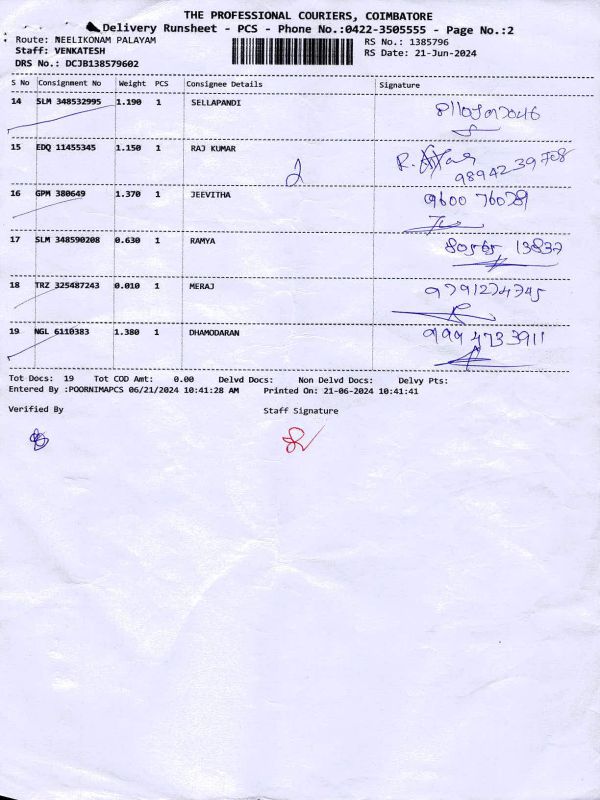 THE PROFESSIONAL COURIERS, COIMBATORE
Delivery Runsheet - PCS - Phone No.:0422-3505555 - Page No.:2
Route: NEELIKONAM PALAYAM
RS No.: 1385796
Staff: VENKATESH
RS Date: 21-Jun-2024
DRS No.: DCJB138579602
S No Consignment No Weight PCS Consignee Details Signature
14 SLM 348532995 1.190 1 SELLAPANDI
15 EDQ 11455345 1.150 1 RAJ KUMAR
2
98942 39708
16 GPM 380649 1.370 1 JEEVITHA 9600 76078
17 SLM 348590208 0.630 1 RAMYA 80565 13837
18 TRZ 325487243 0.010 1 MERAJ 9791274745
19 NGL 6110383 1.380 1 DHAMODARAN 999 473 3911
Tot Docs: 19 Tot COD Amt: 0.00 Delvd Docs: Non Delvd Docs: Delvy Pts:
Entered By :POORNIMAPCS 06/21/2024 10:41:28 AM Printed On: 21-06-2024 10:41:41
Verified By Staff Signature